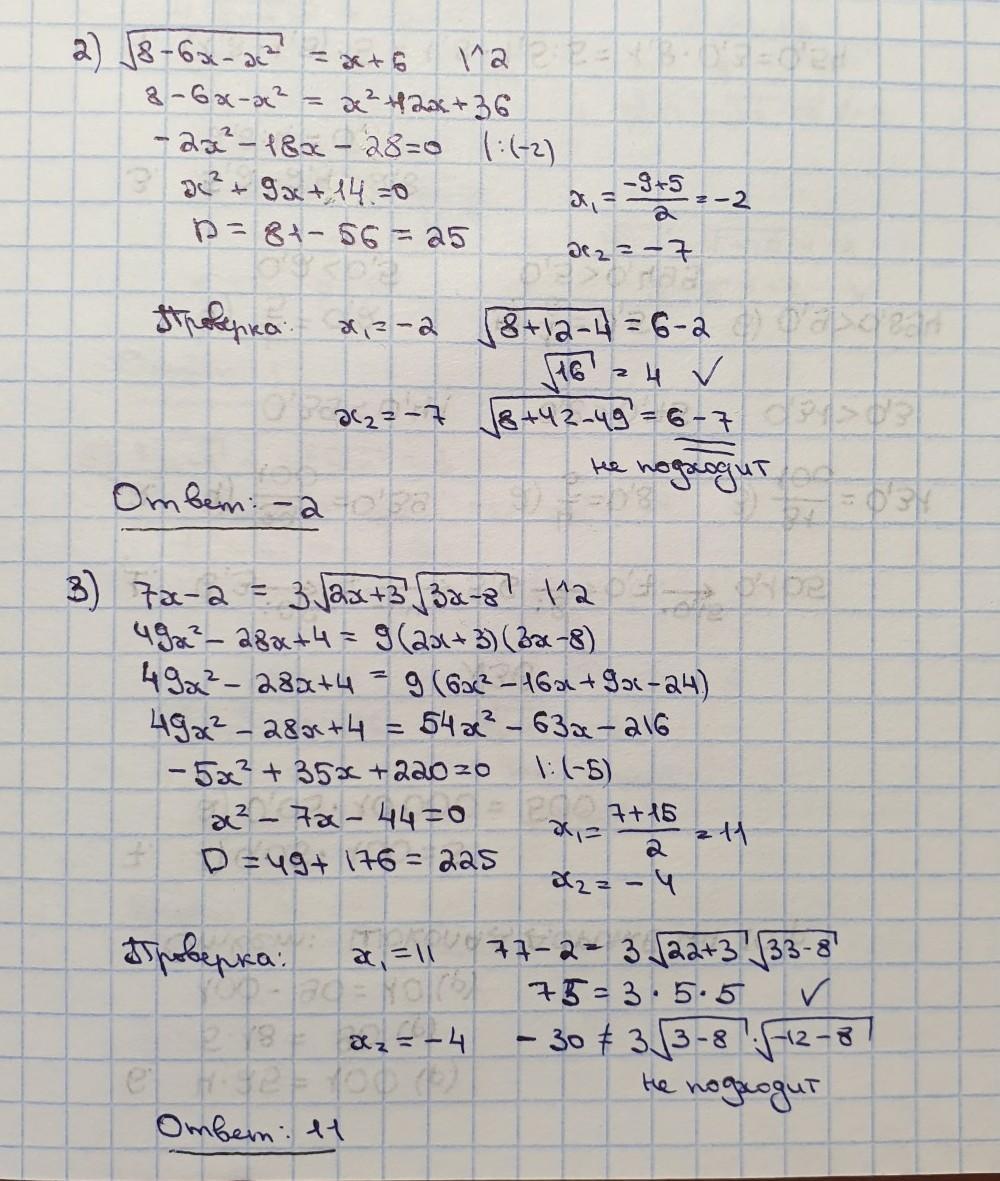 2) √(8-6x-x²) = x+6 |^2
8-6x-x² = x²+12x+36
-2x²-18x-28=0 |:(-2)
x²+9x+14=0
x₁ = (-9+5)/2 = -2
D = 81-56 = 25
x₂ = -7
Проверка: x₁=-2 √(8+12-4) = 6-2
√16 = 4 ✓
x₂=-7 √(8+42-49) = 6-7
не подходит
Ответ: -2
3) 7x-2 = 3√(2x+3) √(3x-8) |^2
49x²-28x+4 = 9(2x+3)(3x-8)
49x²-28x+4 = 9(6x²-16x+9x-24)
49x²-28x+4 = 54x²-63x-216
-5x²+35x+220=0 |:(-5)
x²-7x-44=0
x₁ = (7+15)/2 = 11
D = 49+176 = 225
x₂ = -4
Проверка: x₁=11 77-2 = 3√(22+3) √(33-8)
75 = 3·5·5 ✓
x₂=-4 -30 ≠ 3√(3-8)·√(-12-8)
не подходит
Ответ: 11